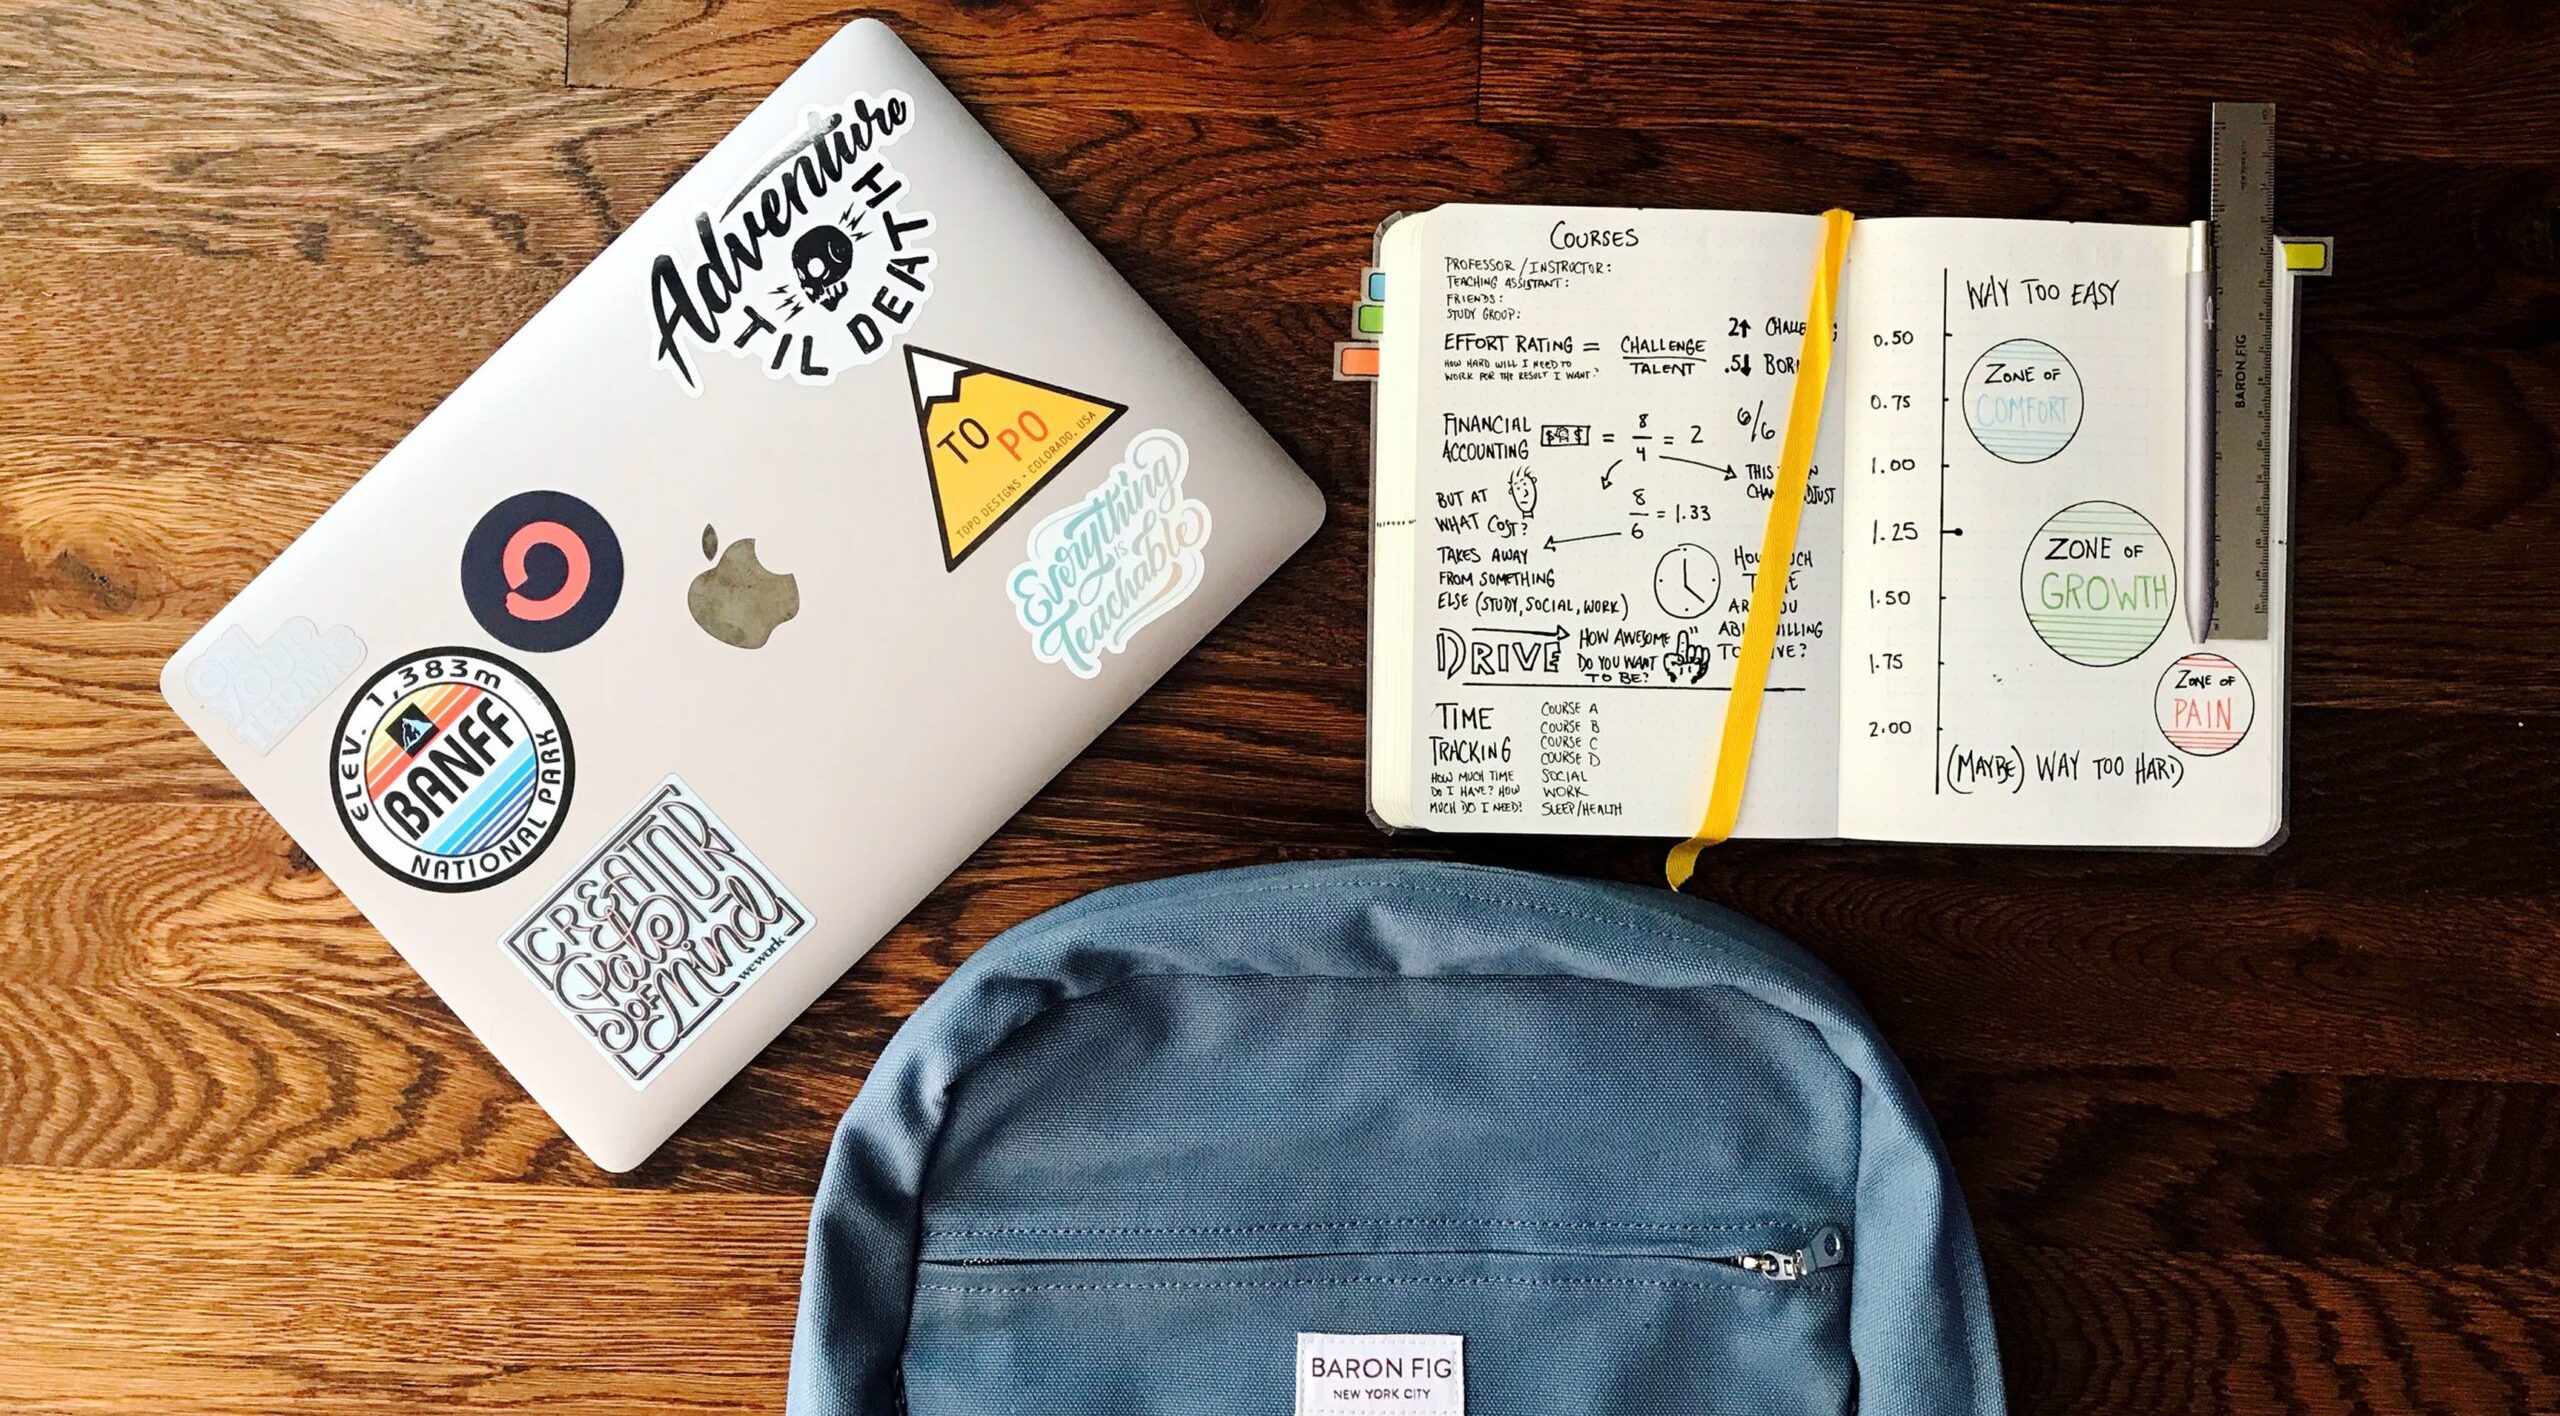 Adventure
TIL DEATH
TOPO
TOPO DESIGNS • COLORADO, USA
Everything
IS
Teachable
ON
YOUR
TERMS
ELEV. 1,383m
BANFF
NATIONAL PARK
CREATOR
State
OF
Mind
wework
COURSES
PROFESSOR/INSTRUCTOR:
TEACHING ASSISTANT:
FRIENDS:
STUDY GROUP:
EFFORT RATING = CHALLENGE
TALENT
HOW HARD WILL I NEED TO
WORK FOR THE RESULT I WANT?
2↑
.5↓
FINANCIAL
ACCOUNTING
$$ = 8/4 = 2
6/6
THIS
BUT AT
WHAT COST?
8/6 = 1.33
TAKES AWAY
FROM SOMETHING
ELSE (STUDY, SOCIAL, WORK)
DRIVE
HOW AWESOME
DO YOU WANT
TO BE?
TIME
TRACKING
HOW MUCH TIME
DO I HAVE? HOW
MUCH DO I NEED?
COURSE A
COURSE B
COURSE C
COURSE D
SOCIAL
WORK
SLEEP/HEALTH
WAY TOO EASY
0.50
ZONE OF
COMFORT
0.75
1.00
1.25
ZONE OF
GROWTH
1.50
1.75
ZONE OF
PAIN
2.00
(MAYBE) WAY TOO HARD
BARON FIG
BARON FIG
NEW YORK CITY